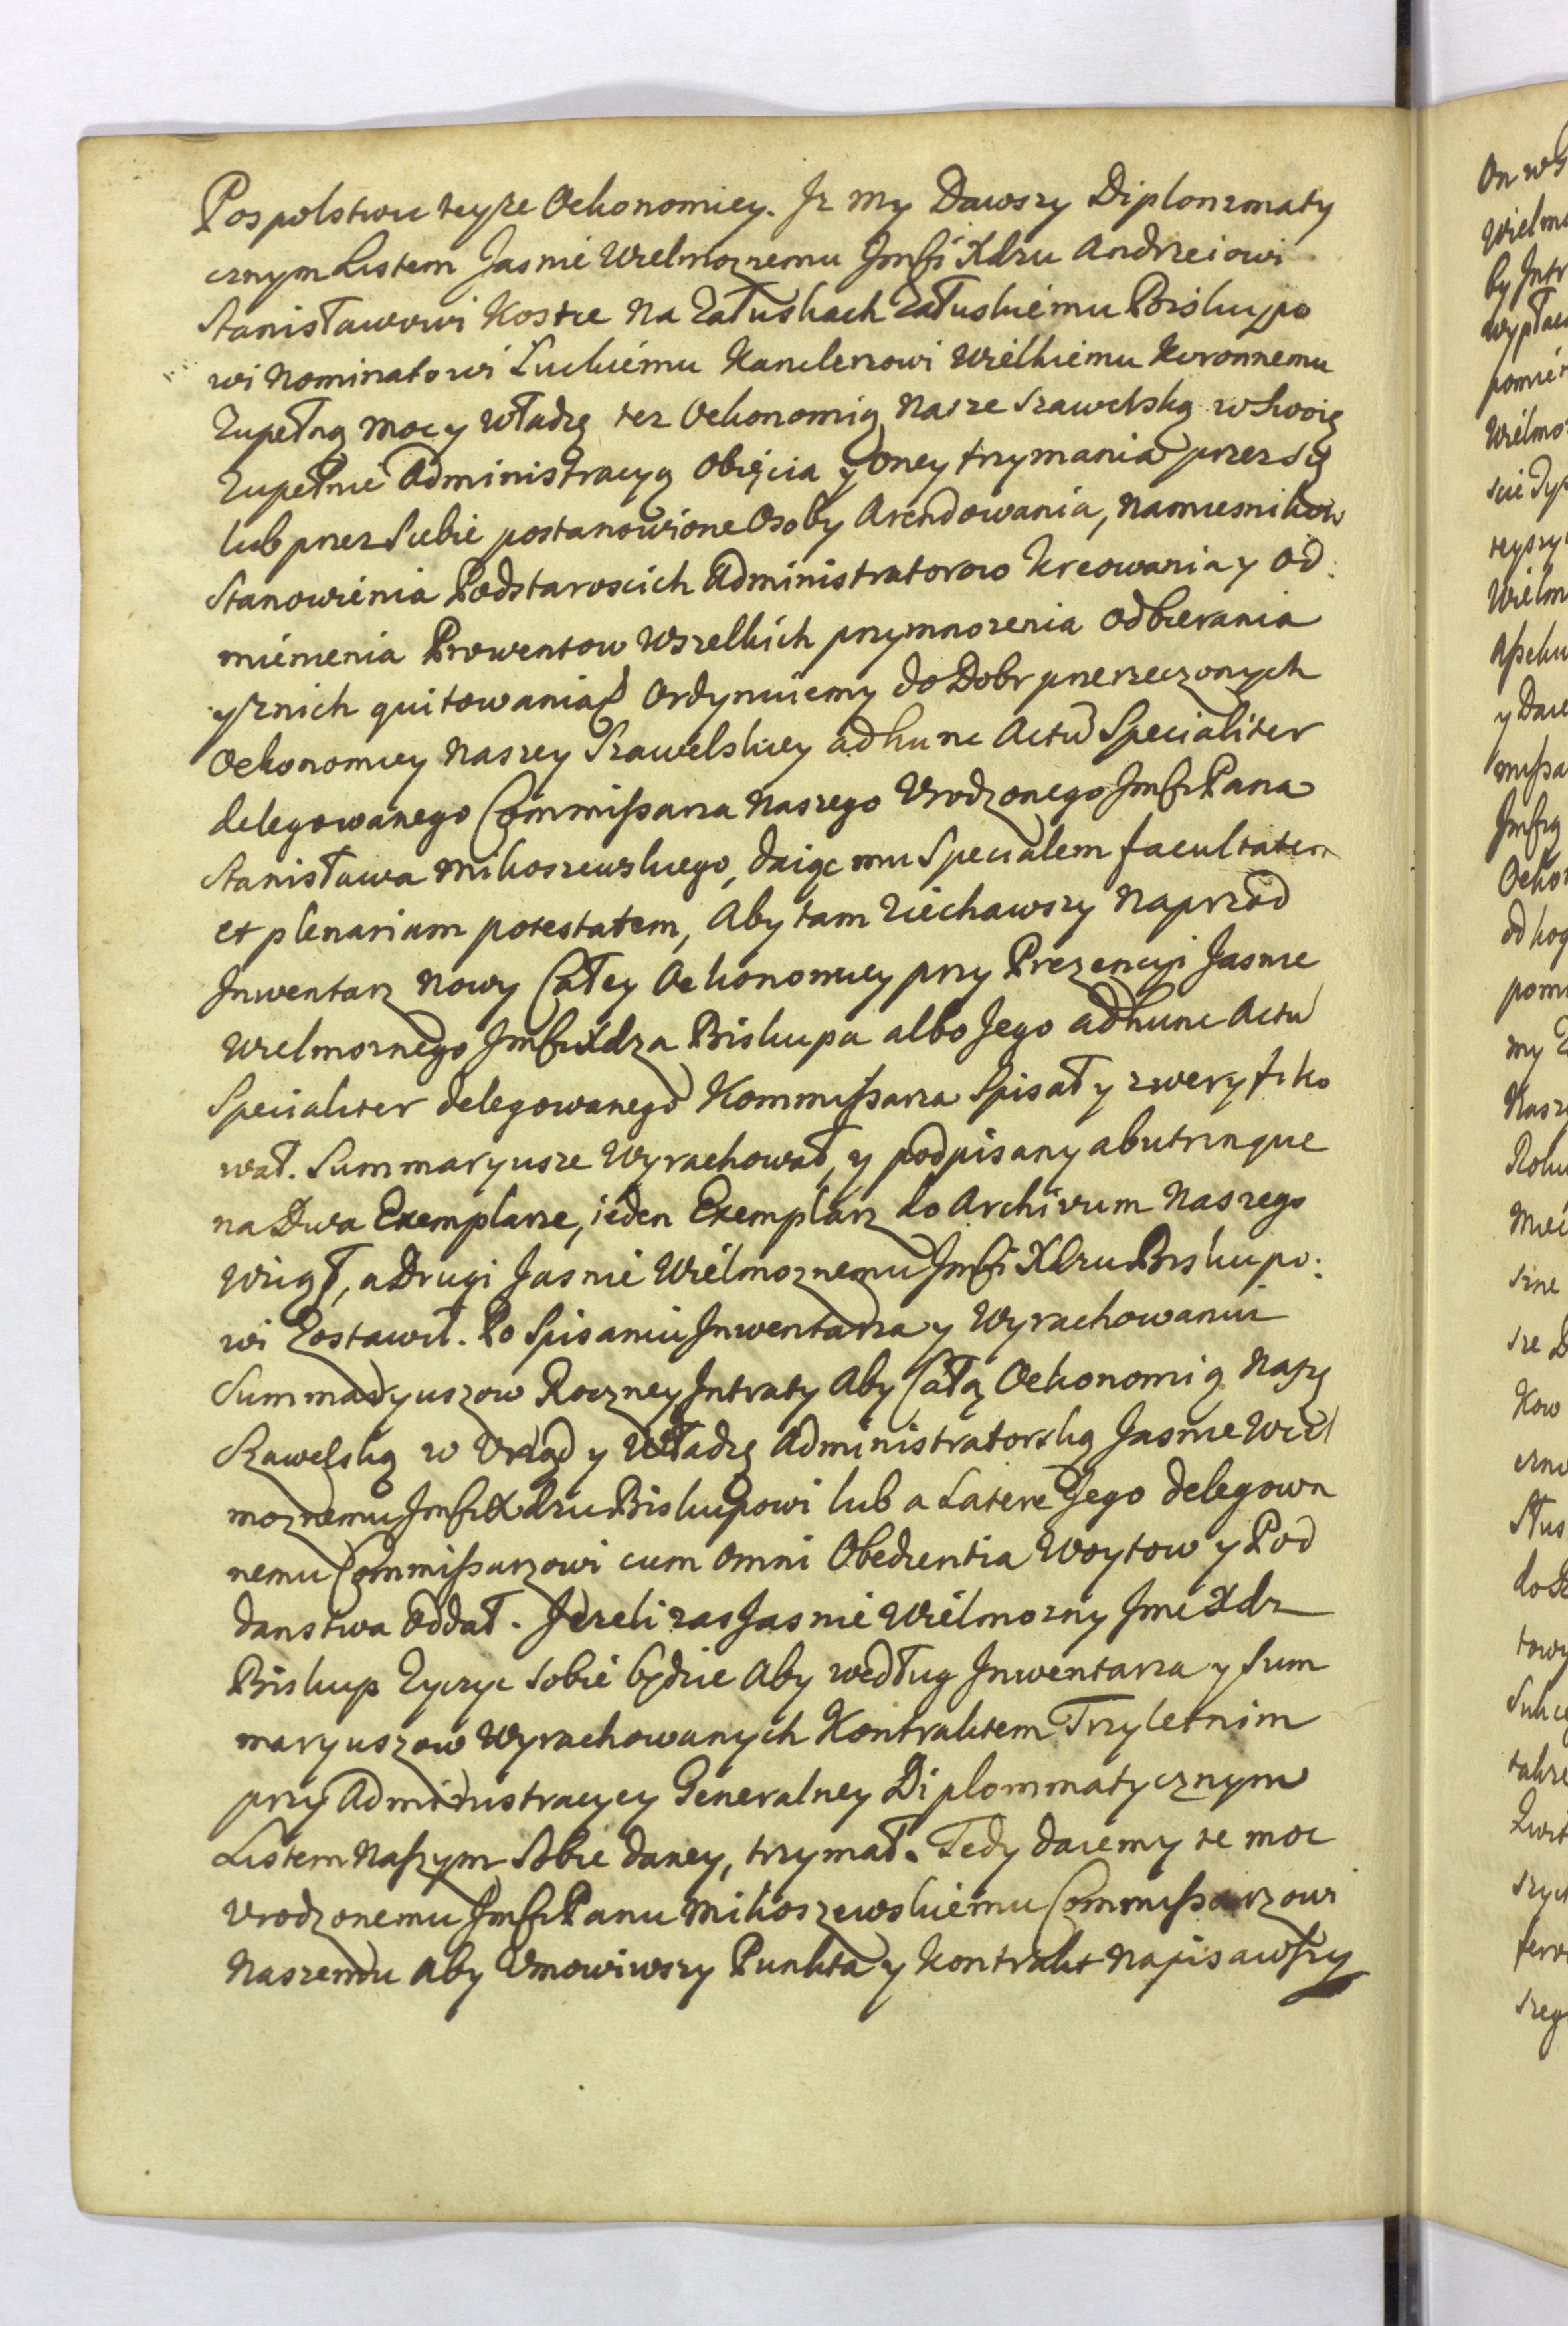 Pospolstwu teyże Oekonomiey. Jz my Dawszy Diplommaty
cznym Listem Jasnie Wielmoznemu Jmści Xdzu Andrzeiowi
Stanisławowi Kostce Na Załuskach Załuskiemu Biskupo
wi Nominatowi Łuckiemu Kanclerzowi Wielkiemu Koronnemu
Zupełną Moc y Władzę tez Oekonomią Nasze Szawelską w Swoię
Zupełnie Administracyą Obięcia y Oney trzymania przez się
lub przez Siebie postanowione Osoby Arendowania, Namiesnikow
Stanowienia Podstaroscich Administratorow Kreowania y Od:
mienienia Prowentow Wszelkich przymnozenia Odbierania
y z nich quitowania Ordynuiemy do Dobr przerzeczonych
Oekonomiey Naszey Szawelskiey ad hunc Actũ Specialiter
delegowanego Commissarza Naszego Vrodzonego Jmści Pana
Stanisława Mikoszewskiego, daiąc mu Specialem facultatem
et plenariam potestatem, Aby tam Ziechawszy Naprzod
Jnwentarz Nowy Całey Oekonomiey przy Prezencyi Jasnie
Wielmoznego Jmści Xdza Biskupa albo Jego ad hunc Actu
Specialiter delegowanego Kommissarza Spisał y zweryfiko
wał. Summaryusze Wyrachował, y podpisany ab utrinque
na Dwa Exemplarze, ieden Exemplarz do Archivum Naszego
Wziął, a Drugi Jasnie Wielmoznemu Jmści Xdzu Biskupo:
wi Zostawił. Po Spisaniu Jnwentarza y Wyrachowaniu
Summaryuszow Roczney Jntraty Aby Całą Oekonomią Naszę
Szawelską w Vrząd y Władzę Administratorską Jasnie Wiel
moznemu Jmści Xdzu Biskupowi lub a Latere Jego delegowa
nemu Commissarzowi cum Omni Obedientia Woytow y Pod
danstwa Oddał. Jezeli zas Jasnie Wielmozny Jmć Xdz
Biskup Zyczyc Sobie będzie Aby według Jnwentarza y Sum
maryuszow Wyrachowanych Kontraktem Trzyletnim
przy Administracyey Generalney Diplommatycznym
Listem Naszym Sobie daney, trzymał. Tedy daiemy te moc
Vrodzonemu Jmści Panu Mikoszewskiemu Commissarzowi
Naszemu Aby Vmowiwszy Punkta y Kontrakt Napisawszy